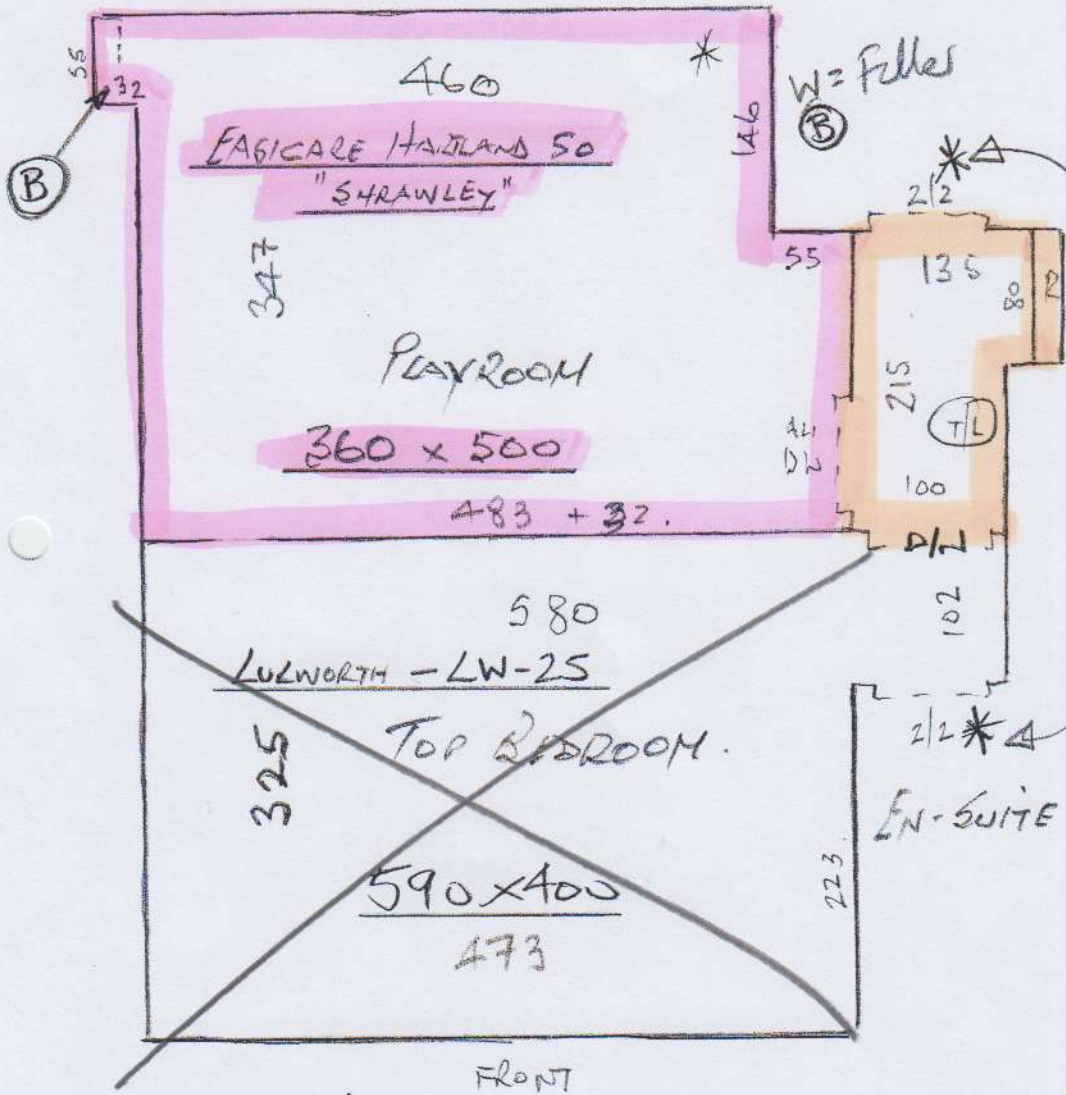 460
55
32
B
EASICARE HARTLAND 50
"SHRAWLEY"
146
W = Filler
B
2/2
55
135
80
R
347
PLAYROOM
215
T/L
360 x 500
100
483 + 32.
D/L
102
580
LULWORTH - LW-25
TOP BEDROOM.
325
2/2
EN-SUITE
223
590 x 400
473
FRONT